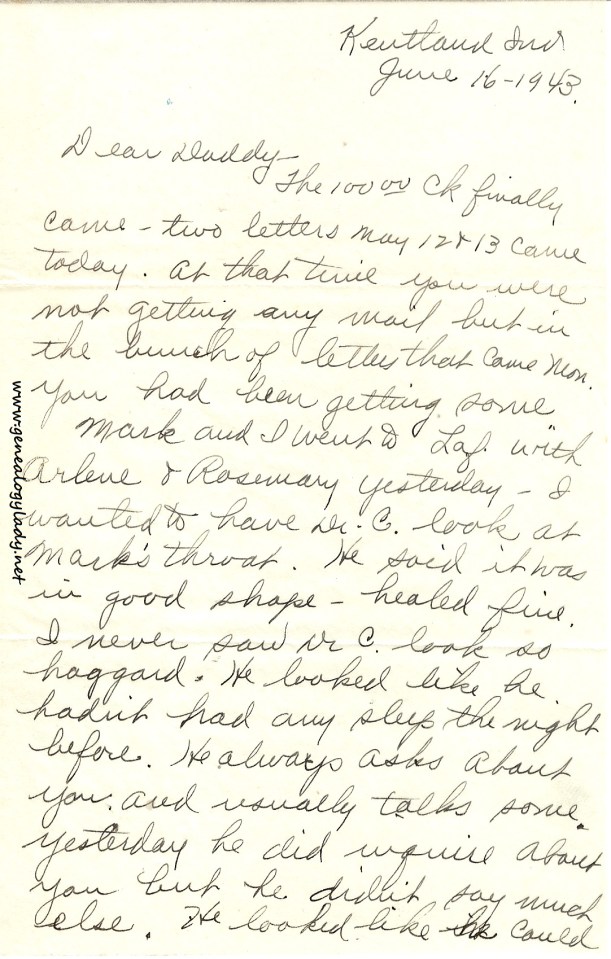 Kentland Ind
June 16-1943.
Dear Daddy-
The 100 00 Ck finally
came - two letters May 12 & 13 came
today. At that time you were
not getting any mail but in
the bunch of letters that came Mon.
you had been getting some
Mark and I went to Laf. with
Arlene & Rosemary yesterday - I
wanted to have Dr. C. look at
Mark's throat. He said it was
in good shape - healed fine.
I never saw Dr C. look so
haggard. He looked like he
hadn't had any sleep the night
before. He always asks about
you. and usually talks some.
yesterday he did inquire about
you but he didn't say much
else. He looked like he could
www.genealogylady.net